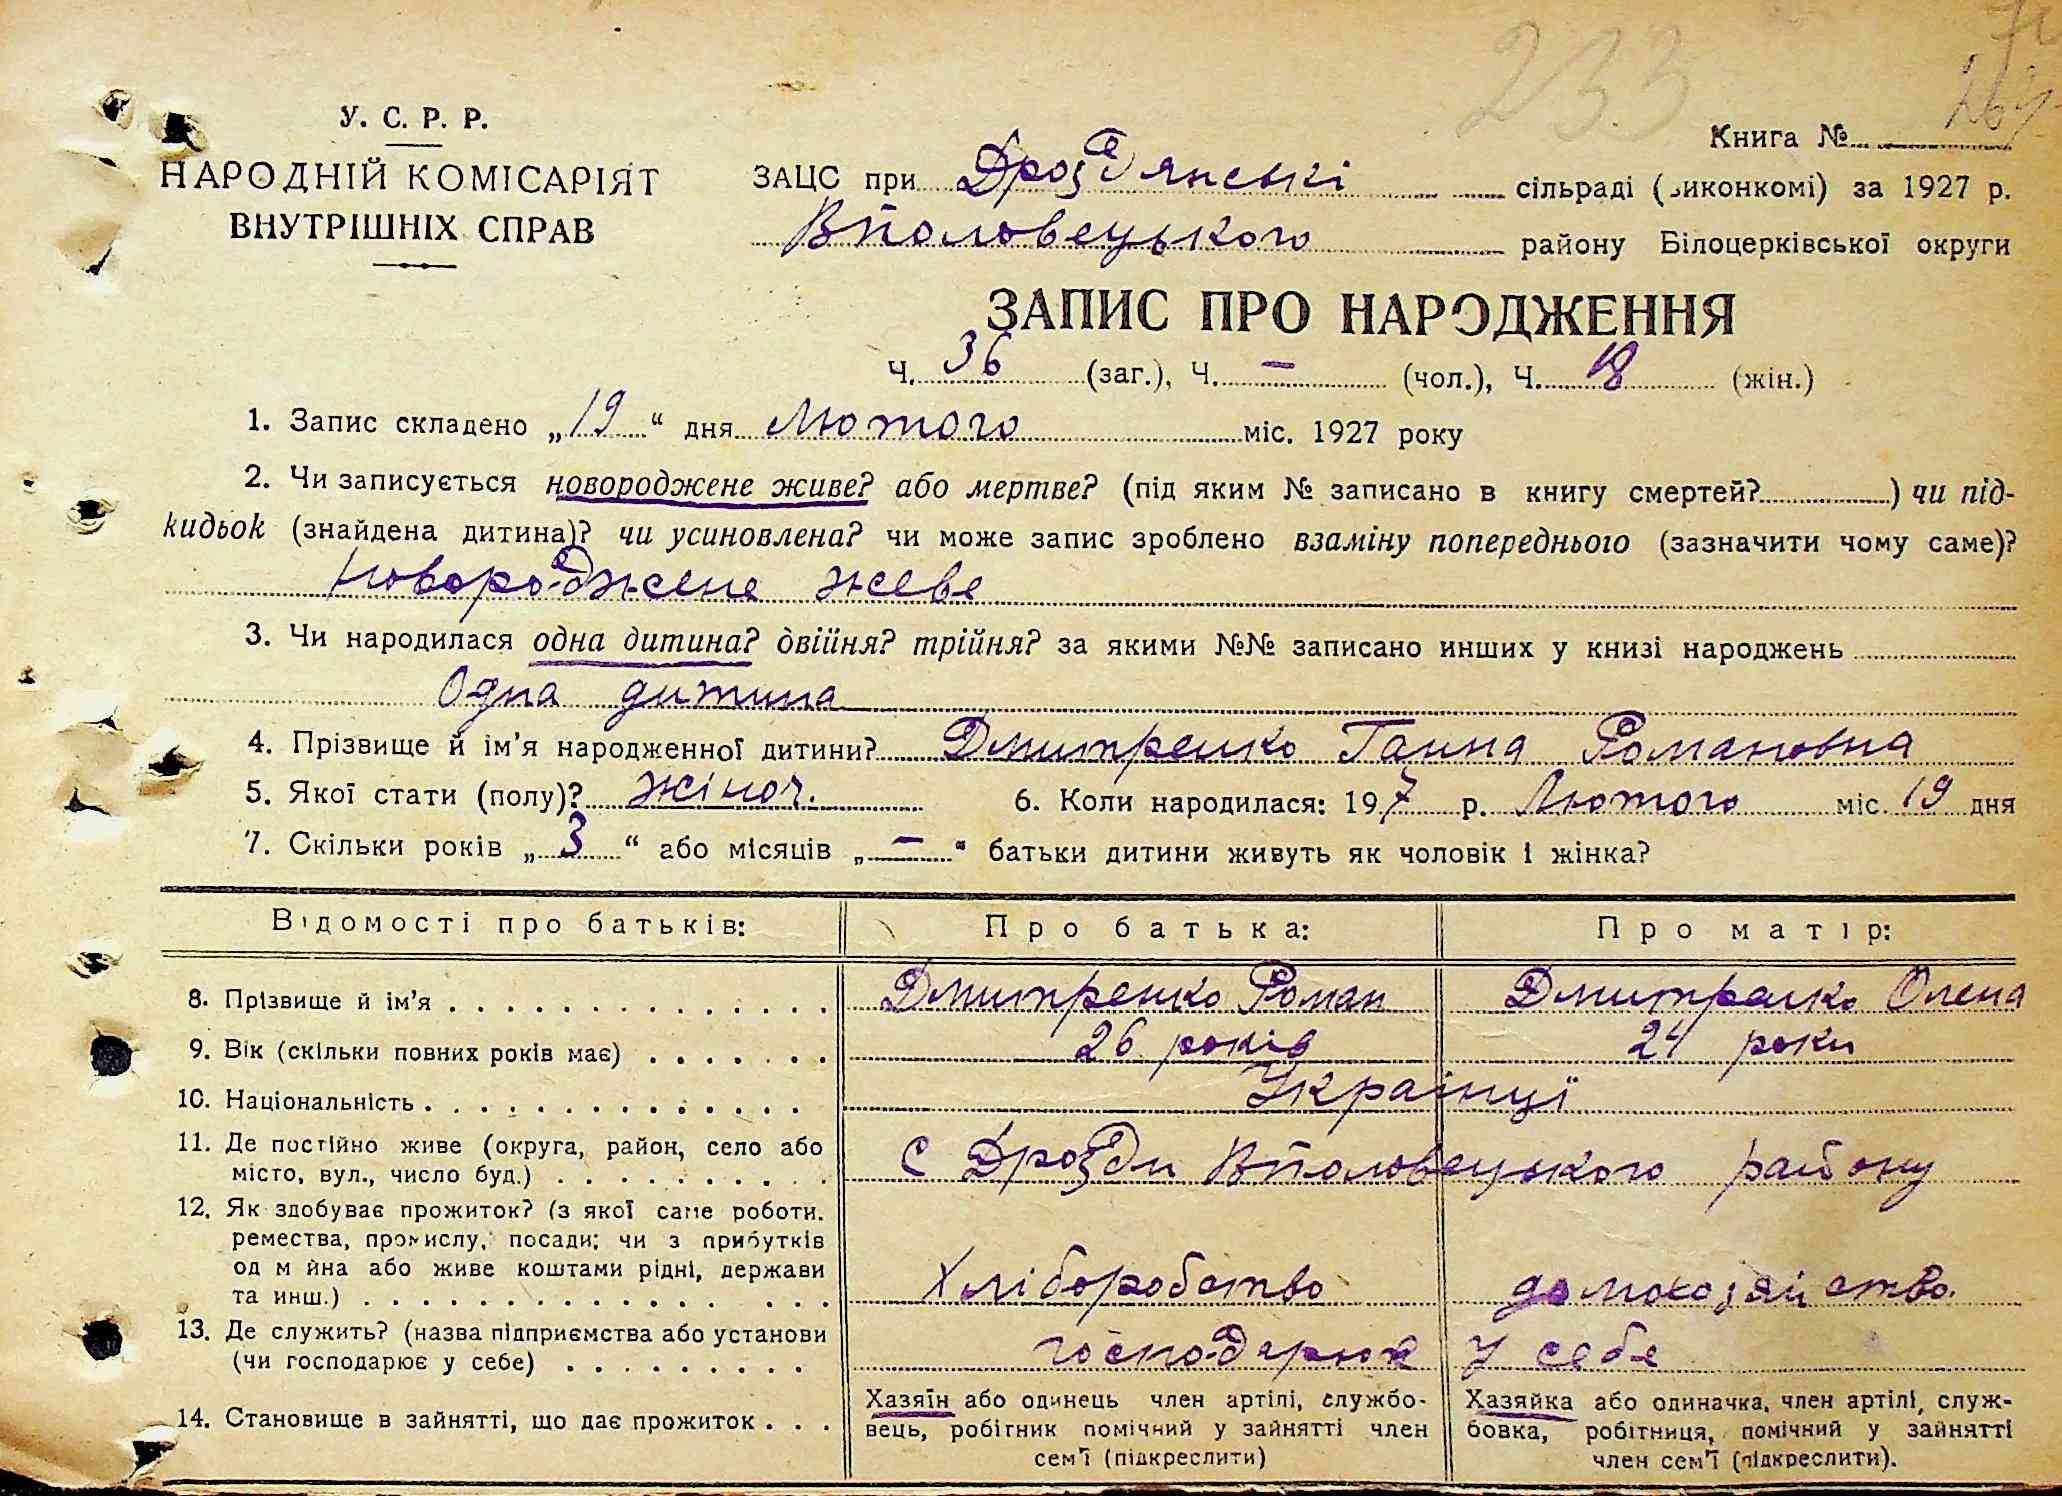 233
У. С. Р. Р.
НАРОДНІЙ КОМІСАРІЯТ
ВНУТРІШНІХ СПРАВ
Книга №
ЗАЦС при Дроздянські сільраді (виконкомі) за 1927 р.
ВПоловецького району Білоцерківської округи
ЗАПИС ПРО НАРОДЖЕННЯ
Ч. 36 (заг.), Ч. — (чол.), Ч. 18 (жін.)
1. Запис складено „19“ дня Лютого міс. 1927 року
2. Чи записується новороджене живе? або мертве? (під яким № записано в книгу смертей?) чи під-
кидьок (знайдена дитина)? чи усиновлена? чи може запис зроблено взаміну попереднього (зазначити чому саме)?
Новороджене жеве
3. Чи народилася одна дитина? двійня? трійня? за якими №№ записано инших у книзі народжень
Одна дитина
4. Прізвище й ім’я народженної дитини? Дмитренко Ганна Романовна
5. Якої стати (полу)? жіноч. 6. Коли народилася: 197 р. Лютого міс. 19 дня
7. Скільки років „3“ або місяців „—“ батьки дитини живуть як чоловік і жінка?
Відомості про батьків: Про батька: Про матір:
8. Прізвище й ім’я Дмитренко Роман Дмитренко Олена
9. Вік (скільки повних років має) 26 років 24 роки
10. Національність Українці
11. Де постійно живе (округа, район, село або
місто, вул., число буд.) с Дрозди ВПоловецького району
12. Як здобуває прожиток? (з якої саме роботи,
ремества, промислу, посади; чи з прибутків
од майна або живе коштами рідні, держави
та инш.) Хліборобство домохозяйство.
13. Де служить? (назва підприємства або установи
(чи господарює у себе) господарює у себе
14. Становище в зайнятті, що дає прожиток
Хазяїн або одинець член артілі, службо-
вець, робітник помічний у зайнятті член
сем’ї (підкреслити)
Хазяйка або одиначка, член артілі, служ-
бовка, робітниця, помічний у зайнятті
член сем’ї (підкреслити).